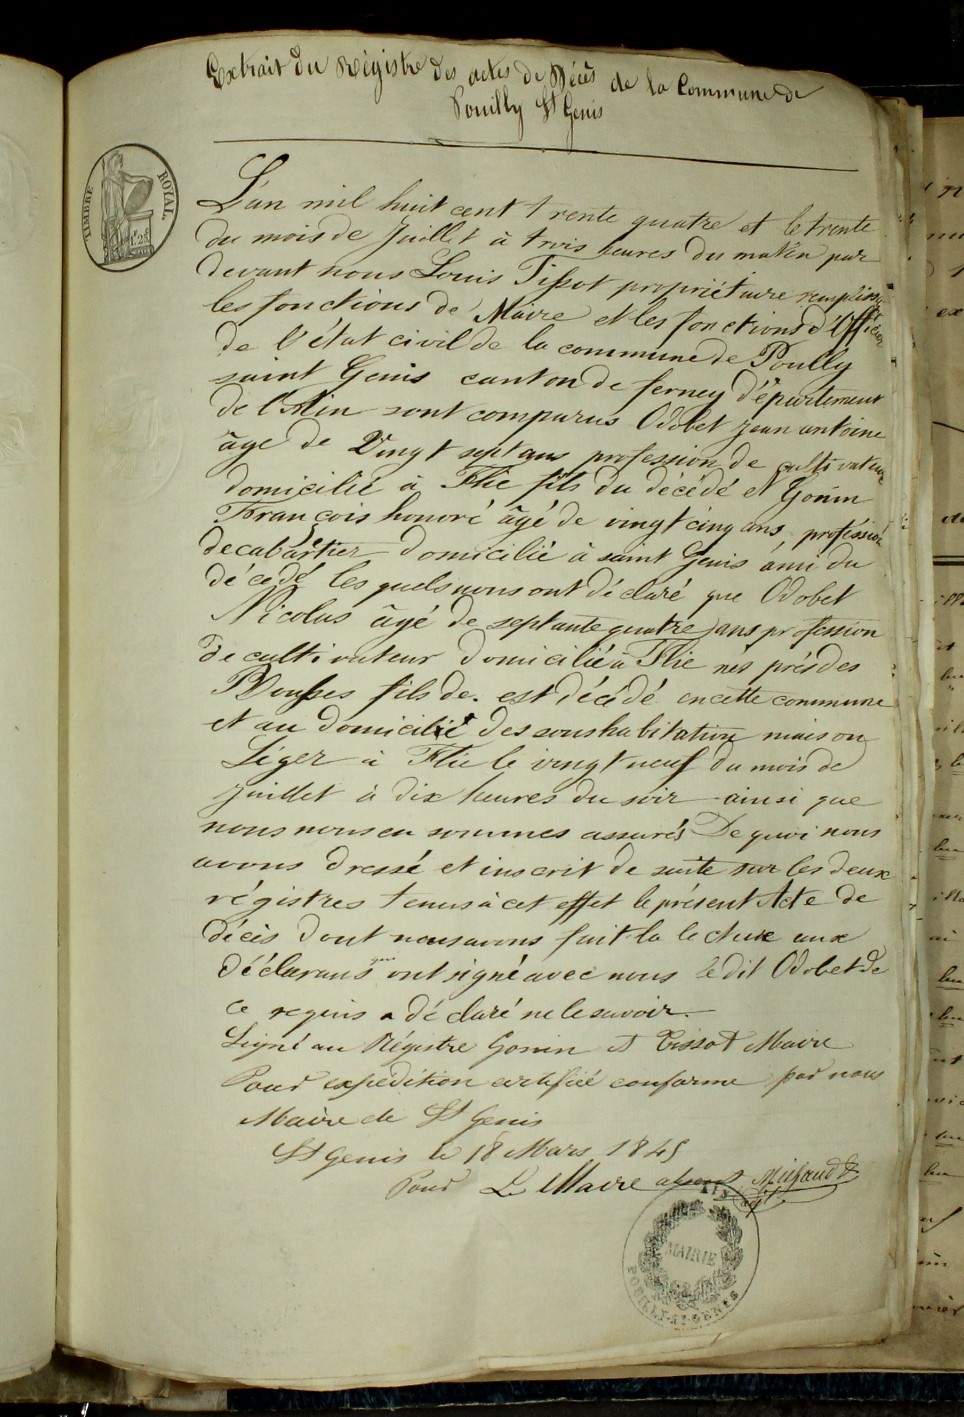 Extrait du Régistre des actes de Décès de la Commune de
Pouilly St Genis
TIMBRE ROYAL
L'an mil huit cent trente quatre et le trente
du mois de Juillet à trois heures du matin par
devant nous Louis Tissot propriétaire remplissant
les fonctions de Maire et les fonctions d'Officier
de l'état civil de la commune de Poully
saint Genis canton de ferney d'épartement
de l'Ain sont comparus Odobet Jean antoine
âge de Vingt sept ans profession de cultivateur
domicilié à Flie fils du décédé et Gonin
François honoré âgé de vingt cinq ans profession
de cabartier domicilié à saint Genis ami du
décédé les quels nous ont déclaré que Odobet
Nicolas âgé de septante quatre ans profession
de cultivateur domicilié à Flie nés près des
Bousses fils de. est décédé en cette commune
et au domicilié des sous habitation maison
Léger à Flie le vingt neuf du mois de
Juillet à dix heures du soir ainsi que
nous nous en sommes assurés De quoi nous
avons dressé et inscrit de suite sur les deux
régistres tenus à cet effet le présent Acte de
décès dont nous avons fait la lecture aux
déclarans qui ont signé avec nous le dit Odobet de
ce requis a déclaré ne le savoir.
Signé au Régistre Gonin et Tissot Maire
Pour expédition certifiée conforme par nous
Maire de St Genis
St Genis le 18 Mars 1845
Pour Le Maire absent
MAIRIE
POUILLY-ST-GENIS